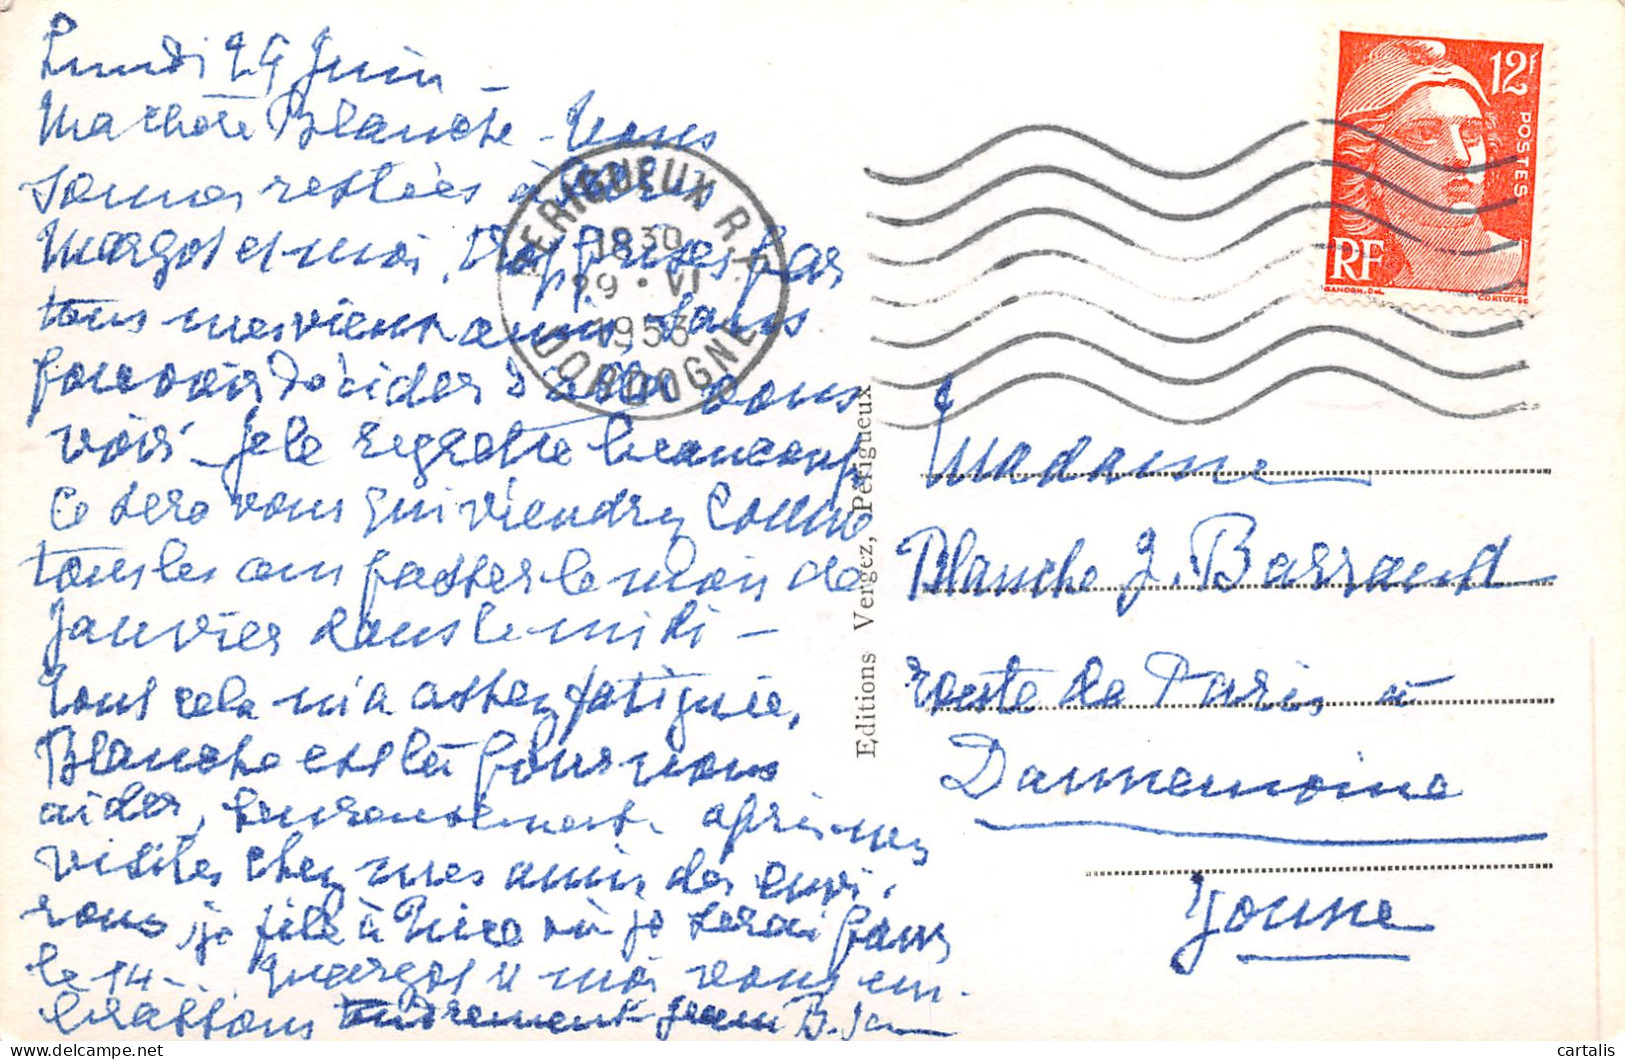 Lundi 29 Juin -
Ma chère Blanche - Nous
sommes restées à Paris
Margot et moi, trop prises par
tous mes vieux amis, sans
pouvoir décider d'aller vous
voir - Je le regrette beaucoup
Ce sera vous qui viendrez comme
tous les ans passer le mois de
Janvier dans le midi -
Tout cela m'a assez fatiguée,
Blanche est là pour nous
aider, heureusement. après mes
visites chez mes amis des envi-
rons, je file à Nice où je serai pour
le 14 - Margot et moi vous em-
brassons tendrement
PERIGUEUX R.P.
1830
29 · VI
1953
DORDOGNE
12F
POSTES
RF
GANDON. DEL
CORTOT. SC
Editions Vergez, Périgueux
Madame
Blanche J. Barraud
route de Paris à
Dannemoine
Yonne
cartalis